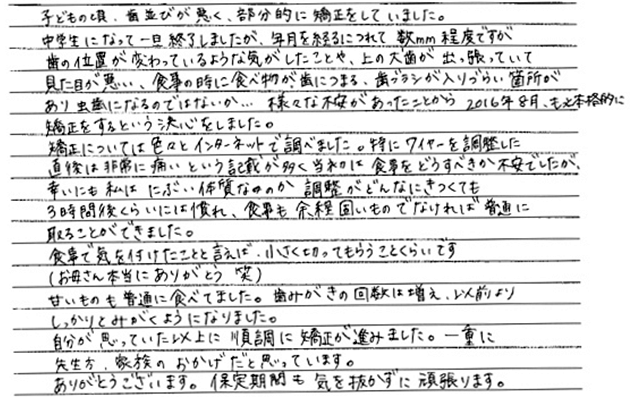 子どもの頃、歯並びが悪く、部分的に矯正をしていました。
中学生になって一旦終了しましたが、年月を経るにつれて数mm程度ですが
歯の位置が変わっているような気がしたことや、上の犬歯が出っ張っていて
見た目が悪い、食事の時に食べ物が歯につまる、歯ブラシが入りづらい箇所が
あり虫歯になるのではないか… 様々な不安があったことから 2016年8月、本格的に
矯正をするという決心をしました。
矯正については色々とインターネットで調べました。特にワイヤーを調整した
直後は非常に痛いという記載が多く当初は食事をどうすべきか不安でしたが、
幸いにも私は にぶい体質なのか 調整がどんなにきつくても
3時間後くらいには慣れ、食事も余程固いものでなければ普通に
取ることができました。
食事で気を付けたことと言えば、小さく切ってもらうことくらいです
(お母さん本当にありがとう 笑)
甘いものも普通に食べてました。歯みがきの回数は増え、以前より
しっかりとみがくようになりました。
自分が思っていた以上に順調に矯正が進みました。一重に
先生方、家族のおかげだと思っています。
ありがとうございます。保定期間も気を抜かずに頑張ります。